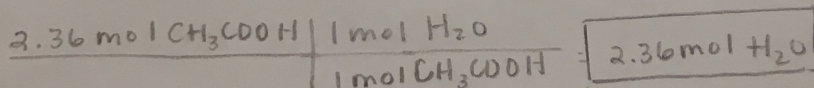 2.36 mol CH₃COOH | 1 mol H₂O
1 mol CH₃COOH = 2.36 mol H₂O